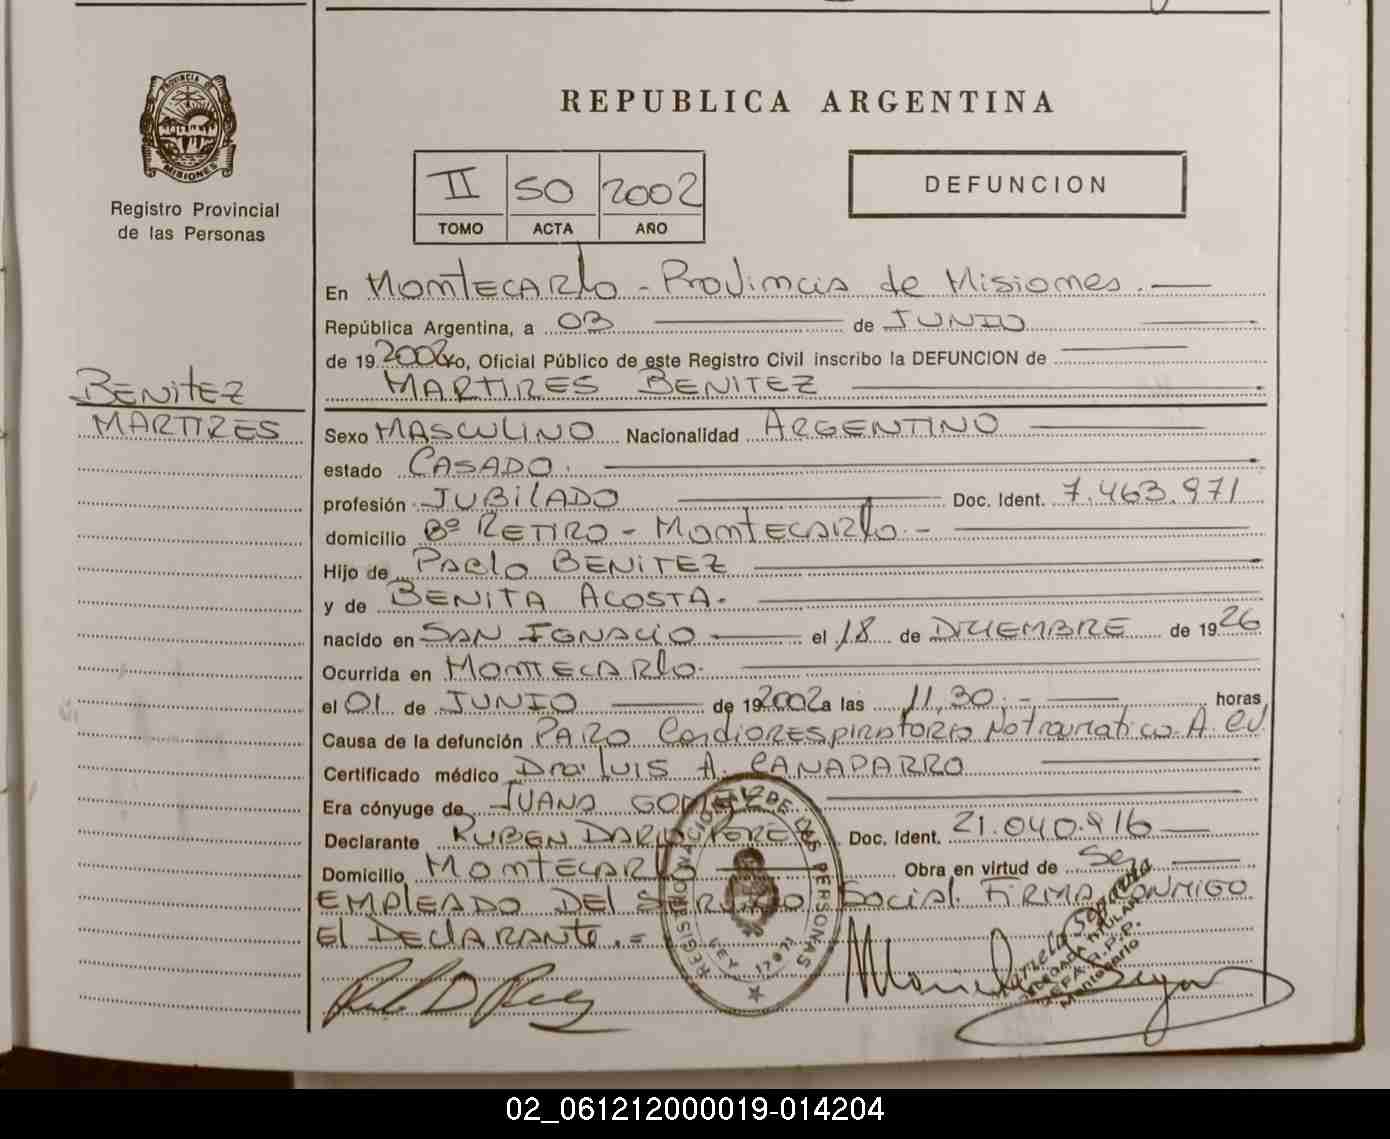 REPUBLICA ARGENTINA
PROVINCIA DE
MISIONES
Registro Provincial
de las Personas
II 50 2002
TOMO ACTA AÑO
DEFUNCION
En MONTECARLO - Provincia de Misiones.
República Argentina, a 03 de JUNIO
de 19 2002 Yo, Oficial Público de este Registro Civil inscribo la DEFUNCION de
MARTIRES BENITEZ
BENITEZ
MARTIRES
Sexo MASCULINO Nacionalidad ARGENTINO
estado CASADO.
profesión JUBILADO Doc. Ident. 7.463.971
domicilio Bº RETIRO - MONTECARLO -
Hijo de PABLO BENITEZ
y de BENITA ACOSTA.
nacido en SAN IGNACIO el 18 de DICIEMBRE de 1926
Ocurrida en MONTECARLO.
el 01 de JUNIO de 19 2002 a las 11,30.- horas
Causa de la defunción PARO CARDIORESPIRATORIO No traumatico. A. CV.
Certificado médico LUIS A. CANAPARRO
Era cónyuge de JUANA GOMEZ
Declarante RUBEN DARIO PEREZ Doc. Ident. 21.040.916
Domicilio MONTECARLO Obra en virtud de Ser
EMPLEADO DEL SERVICIO SOCIAL. FIRMA CONMIGO
El DECLARANTE.=
REGISTRO NACIONAL DE LAS PERSONAS
LEY 17671
DELEGADA TITULAR
R.P.P.
Montecarlo
02_061212000019-014204